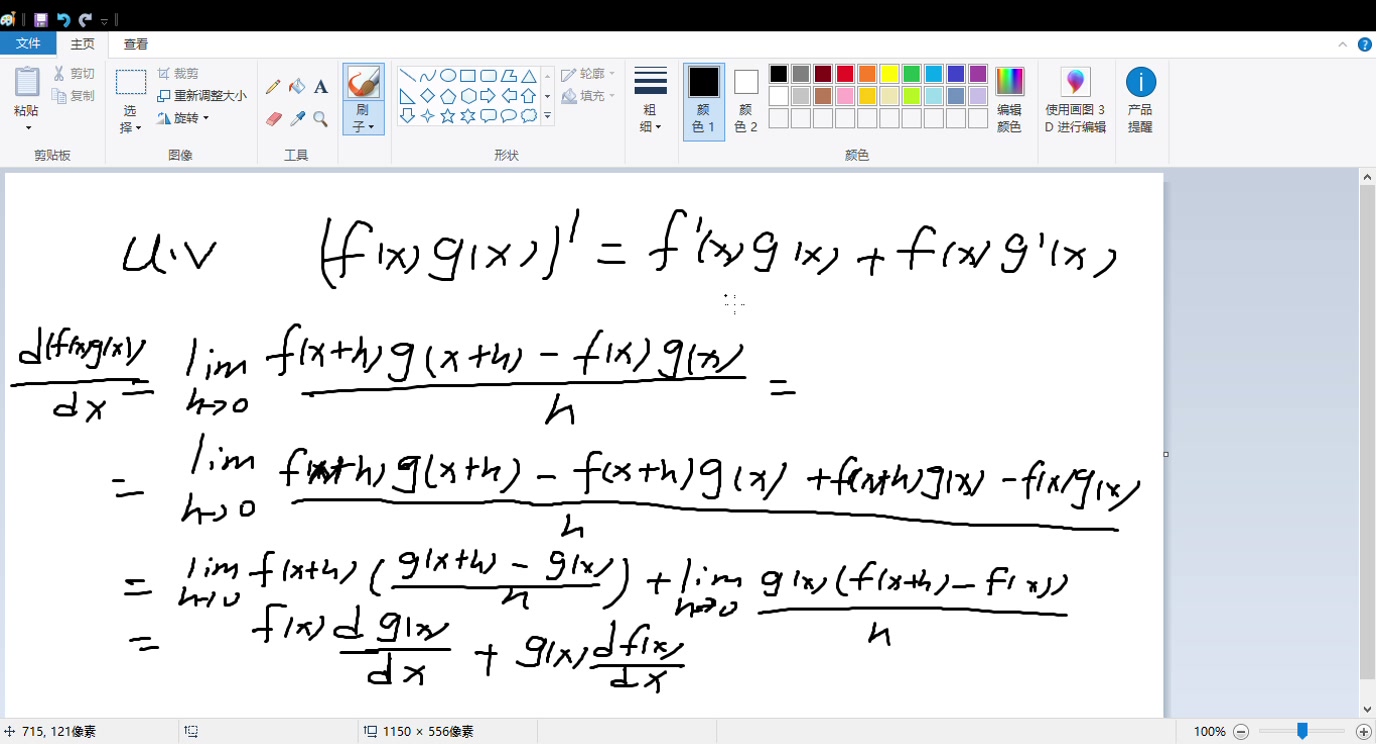 文件 主页 查看
粘贴 剪切 复制 选择 裁剪 重新调整大小 旋转 A 刷子 轮廓 填充 粗细 颜色 1 颜色 2 编辑颜色 使用画图 3D 进行编辑 产品提醒
剪贴板 图像 工具 形状 颜色
u·v (f(x)g(x))' = f'(x)g(x) + f(x)g'(x)
d(f(x)g(x))/dx = lim h→0 f(x+h)g(x+h) - f(x)g(x) / h =
= lim h→0 f(x+h)g(x+h) - f(x+h)g(x) + f(x+h)g(x) - f(x)g(x) / h
= lim h→0 f(x+h) (g(x+h) - g(x) / h) + lim h→0 g(x)(f(x+h) - f(x)) / h
= f(x) d g(x)/dx + g(x) d f(x)/dx
715, 121像素 1150 × 556像素 100%